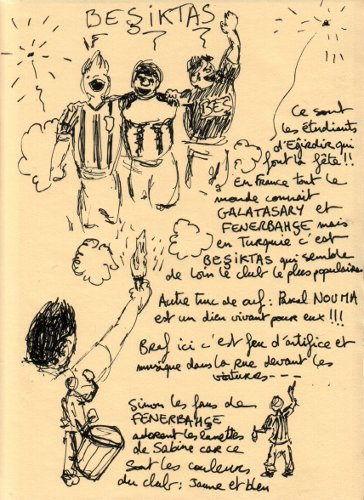 BEŞIKTAS
BES
Ce sont
les étudiants
d'Eğirdir qui
font la fête!!
En France tout le
monde connait
GALATASARY et
FENERBAHŞE mais
en Turquie c'est
BEŞIKTAS qui semble
de loin le club le plus populaire
Autre truc de ouf: Pascal NOUMA
est un dieu vivant pour eux!!!
Bref ici c'est feu d'artifice et
musique dans la rue devant les
voitures---
Sinon les fans de
FENERBAHŞE
adorent les lunettes
de Sabine car ce
sont les couleurs
du club: Jaune et bleu